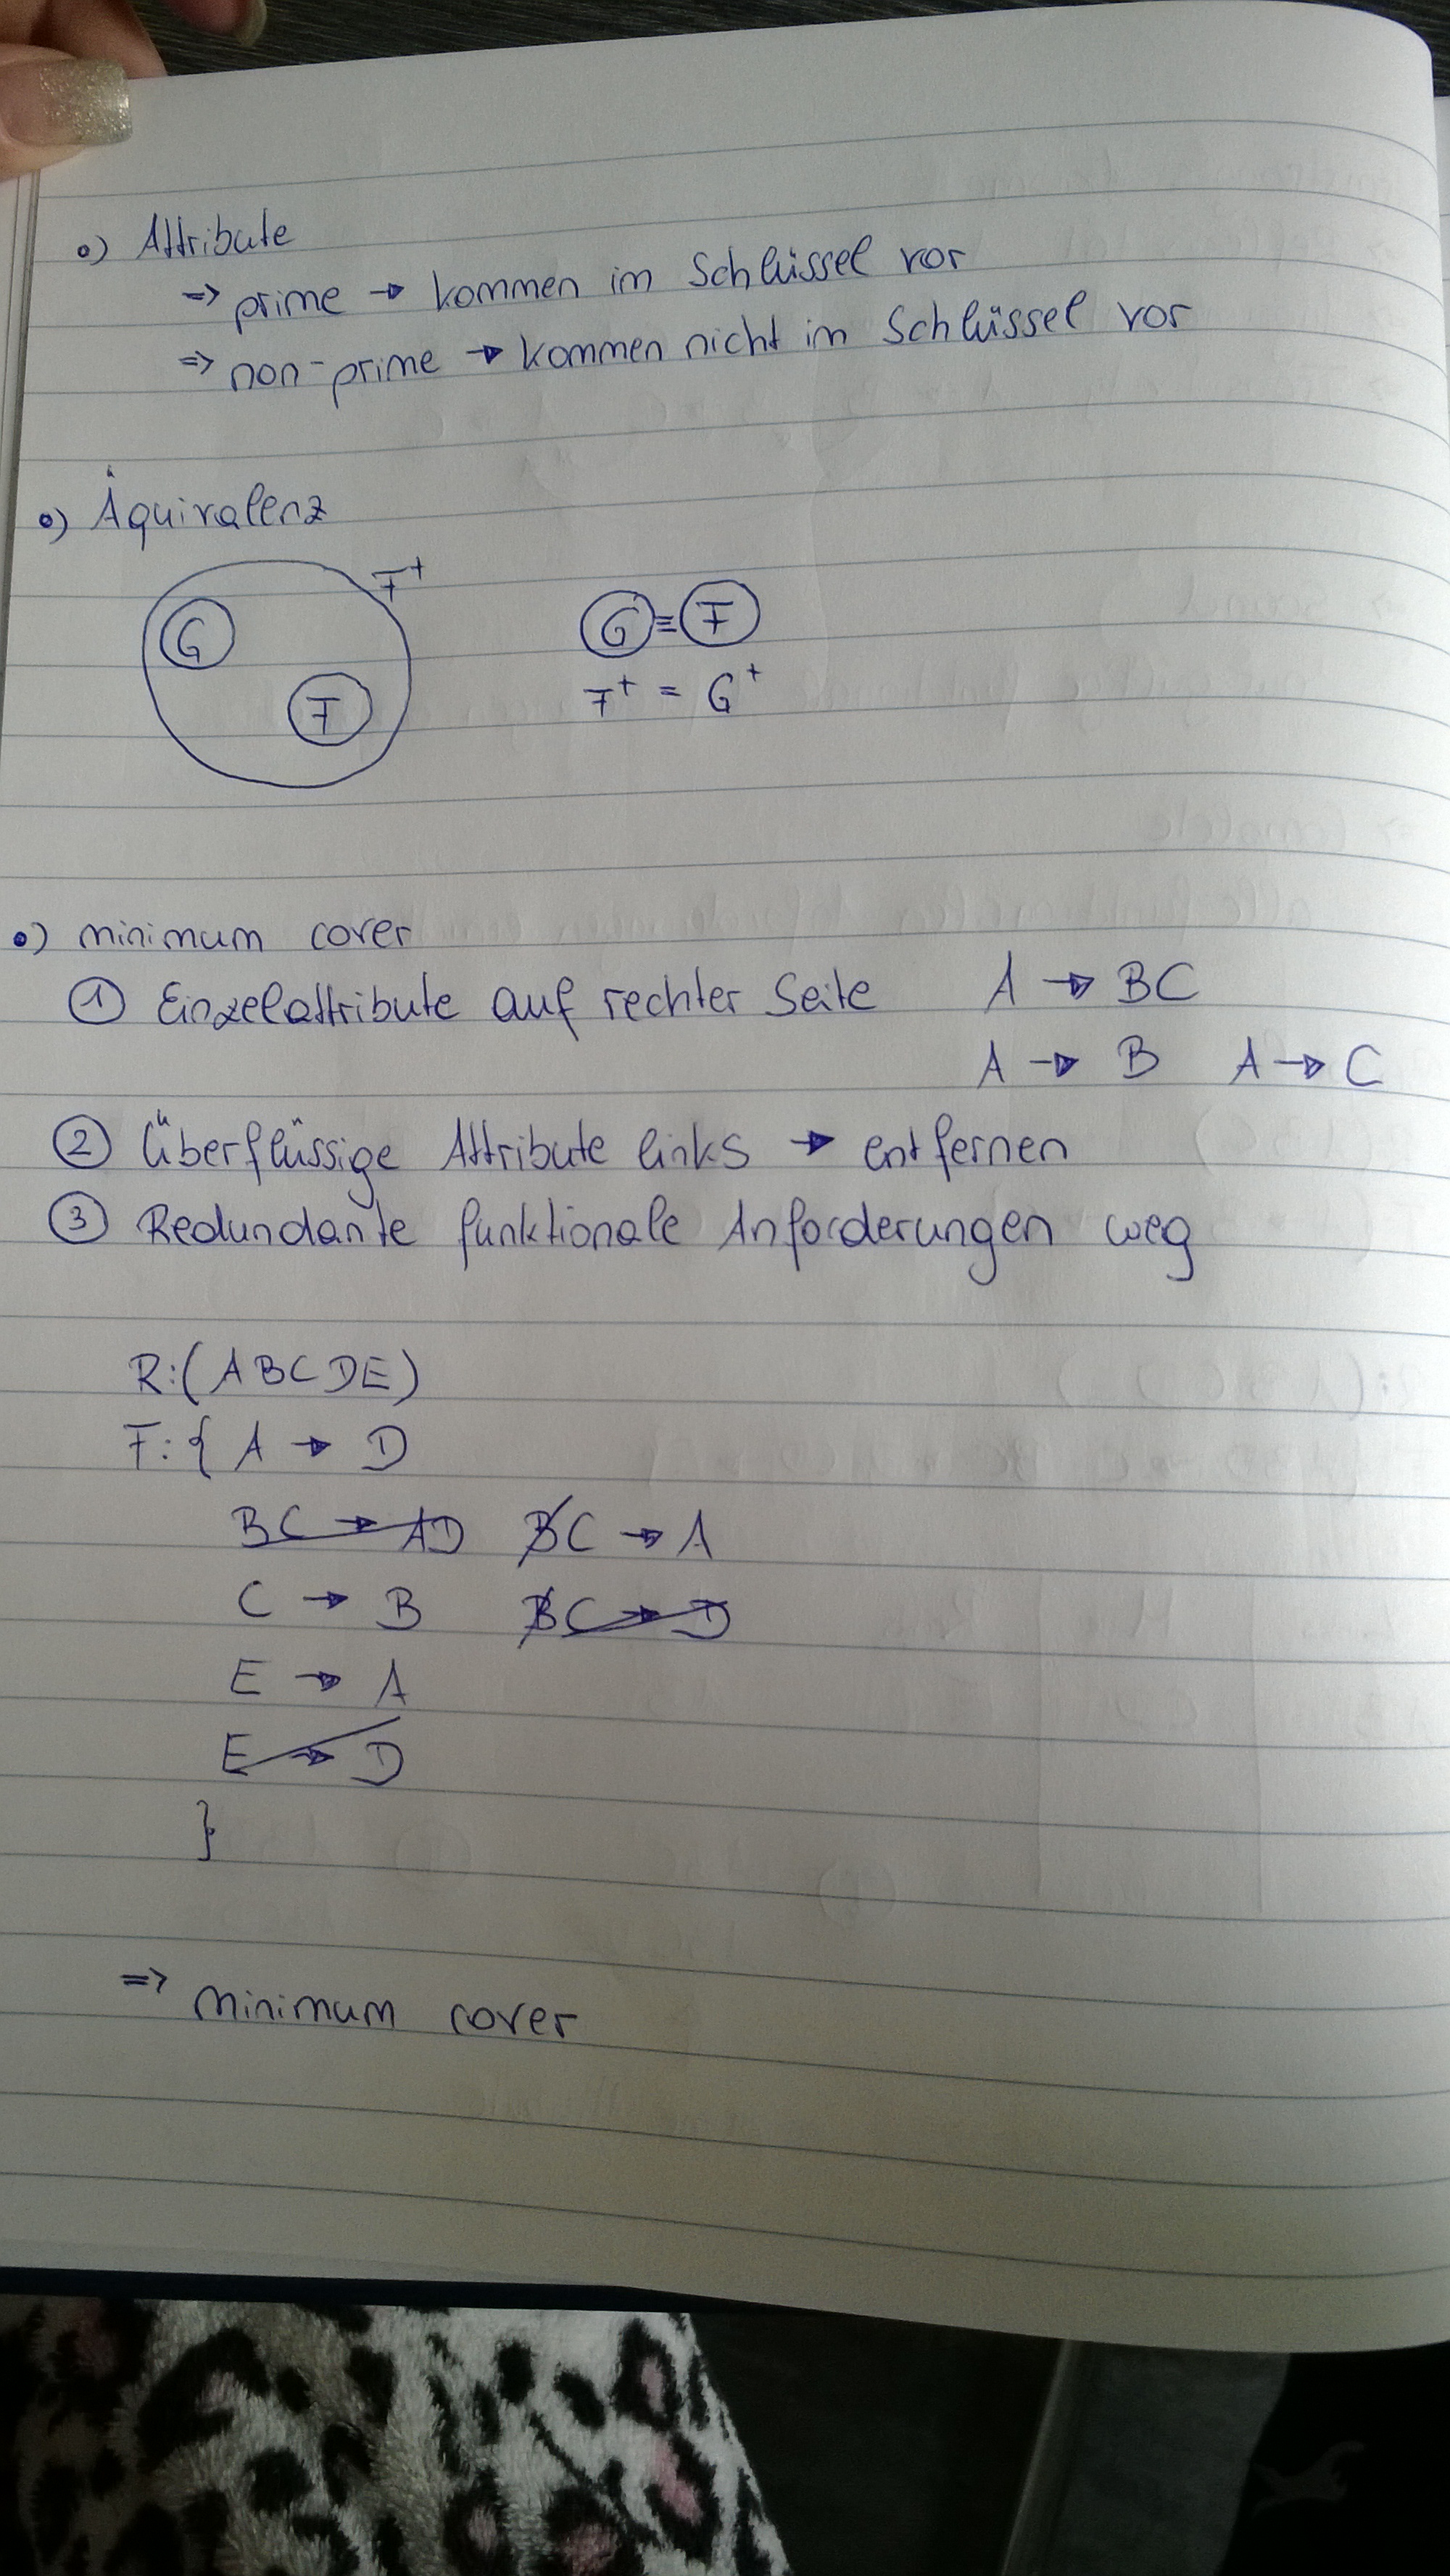 o) Attribute
=> prime → kommen im Schlüssel vor
=> non-prime → kommen nicht im Schlüssel vor
o) Äquivalenz
F⁺
G
F
G ≡ F
F⁺ = G⁺
o) minimum cover
① Einzelattribute auf rechter Seite A → BC
A → B A → C
② Überflüssige Attribute links → entfernen
③ Redundante funktionale Anforderungen weg
R:(ABCDE)
F:{ A → D
BC → AD BC → A
C → B BC → D
E → A
E → D
}
=> minimum cover